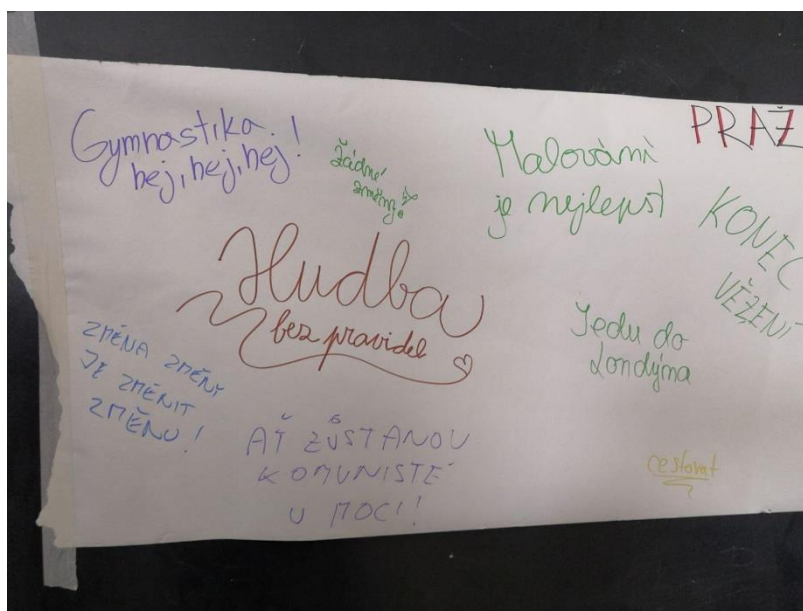 Gymnastika!
hej, hej, hej!
žádné
změny
Malování
je nejlepší
PRAŽ
KONEC
VĚZENÍ
Hudba
bez pravidel
ZMĚNA ZMĚNY
JE ZMĚNIT
ZMĚNU!
Jedu do
Londýna
AŤ ZŮSTANOU
KOMUNISTÉ
U MOCI!
cestovat